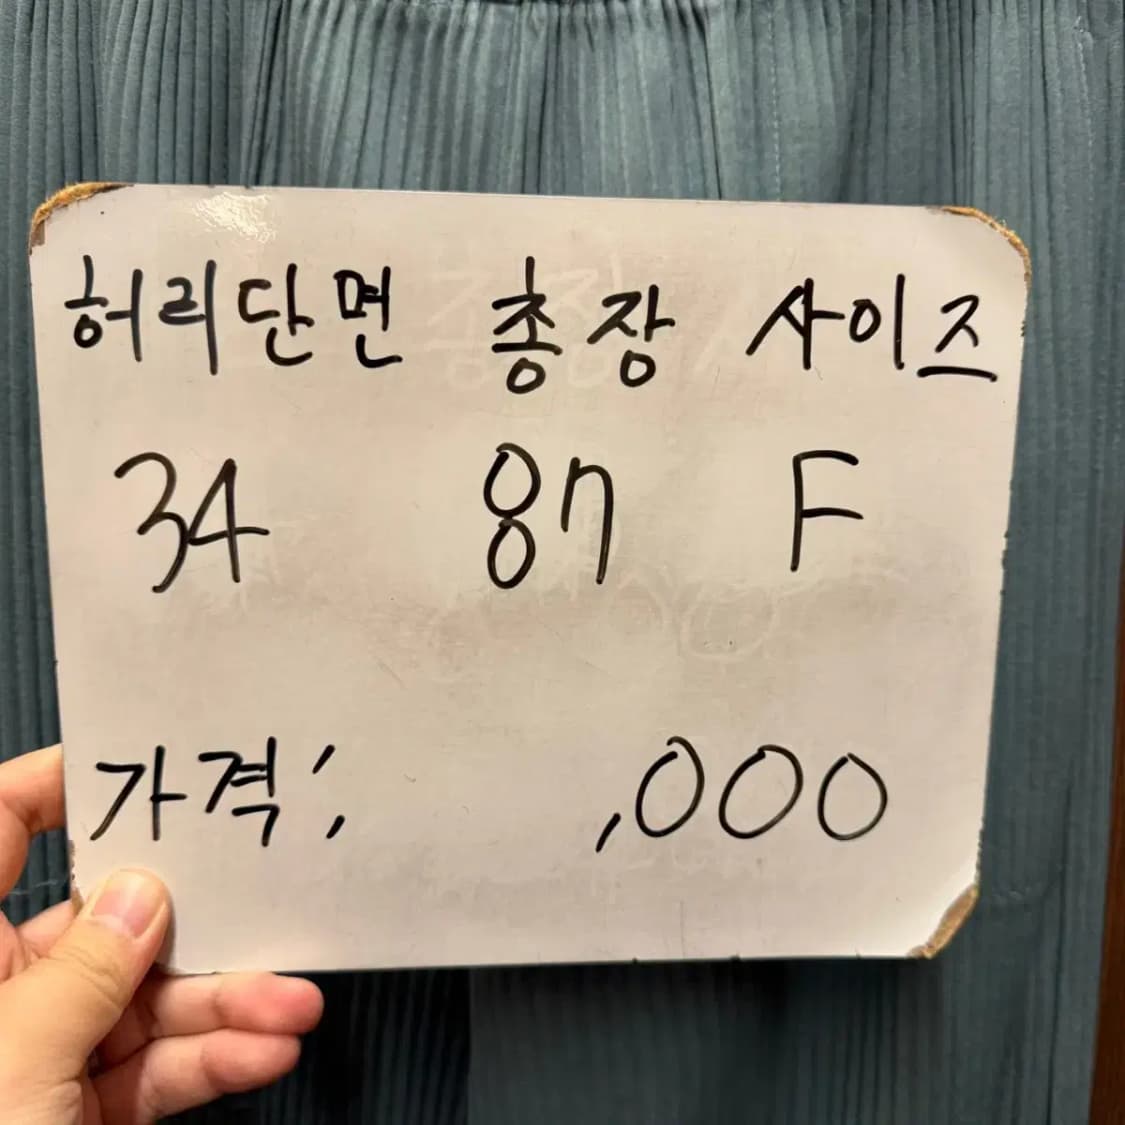 허리단면 총장 사이즈
34 87 F
가격: ,000